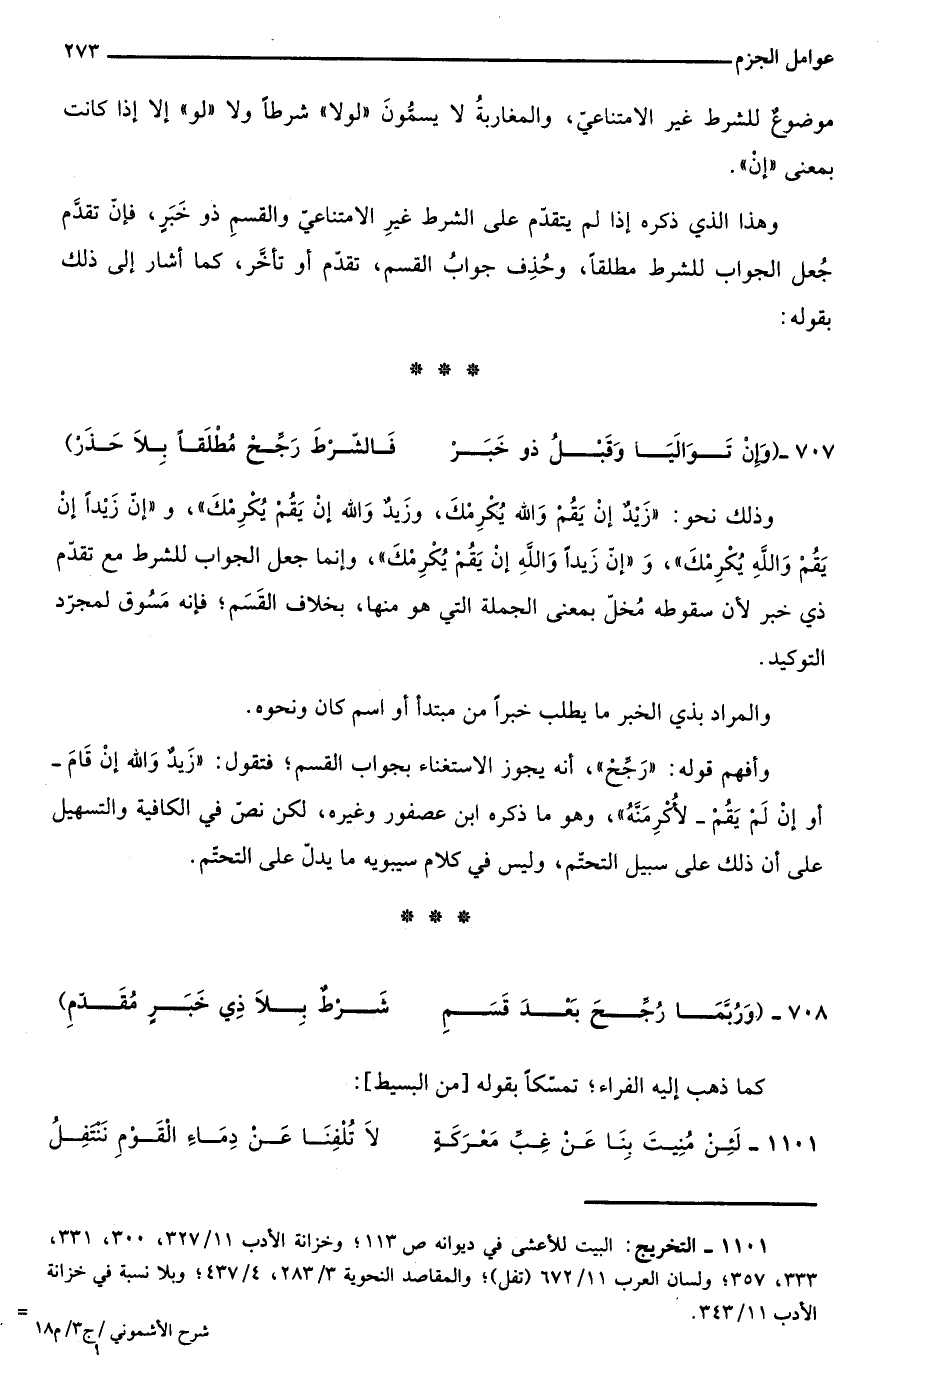 عوامل الجزم ٢٧٣
موضوعٌ للشرط غير الامتناعيّ، والمغاربةُ لا يسمُّونَ «لولا» شرطاً ولا «لو» إلا إذا كانت
بمعنى «إنْ».
وهذا الذي ذكره إذا لم يتقدّم على الشرط غيرِ الامتناعيّ والقسمِ ذو خَبَرٍ، فإنّ تقدَّم
جُعل الجواب للشرط مطلقاً، وحُذِف جوابُ القسم، تقدّم أو تأخَّر، كما أشار إلى ذلك
بقوله:
* * *
٧٠٧ ـ (وَإِنْ تَوَالَيَا وَقَبْلُ ذو خَبَرْ فَالشّرْطَ رَجِّحْ مُطْلَقاً بِلاَ حَذَرْ)
وذلك نحو: «زَيْدٌ إنْ يَقُمْ وَالله يُكْرِمْكَ، وزَيدٌ وَالله إنْ يَقُمْ يُكْرِمْكَ»، و «إنّ زَيْداً إنْ
يَقُمْ وَاللَّهِ يُكْرِمْكَ»، وَ «إنّ زَيداً وَاللَّهِ إنْ يَقُمْ يُكْرِمْكَ»، وإنما جعل الجواب للشرط مع تقدّم
ذي خبر لأن سقوطه مُخلّ بمعنى الجملة التي هو منها، بخلاف القَسَم؛ فإنه مَسُوق لمجرّد
التوكيد.
والمراد بذي الخبر ما يطلب خبراً من مبتدأ أو اسم كان ونحوه.
وأفهم قوله: «رَجِّحْ»، أنه يجوز الاستغناء بجواب القسم؛ فتقول: «زَيدٌ وَالله إنْ قَامَ ـ
أو إنْ لَمْ يَقُمْ ـ لأُكْرِمَنَّهُ»، وهو ما ذكره ابن عصفور وغيره، لكن نصّ في الكافية والتسهيل
على أن ذلك على سبيل التحتّم، وليس في كلام سيبويه ما يدلّ على التحتّم.
* * *
٧٠٨ ـ (وَرُبَّمَا رُجِّحَ بَعْدَ قَسَمِ شَرْطٌ بِلاَ ذِي خَبَرٍ مُقَدّمِ)
كما ذهب إليه الفراء؛ تمسّكاً بقوله [من البسيط]:
١١٠١ ـ لَئِنْ مُنِيتَ بِنَا عَنْ غِبِّ مَعْرَكَةٍ لاَ تُلْفِنَا عَنْ دِمَاءِ الْقَوْمِ نَنْتَفِلُ
١١٠١ ـ التخريج: البيت للأعشى في ديوانه ص ١١٣؛ وخزانة الأدب ٣٢٧/١١، ٣٠٠، ٣٣١،
٣٣٣، ٣٥٧؛ ولسان العرب ٦٧٢/١١ (تفل)؛ والمقاصد النحوية ٢٨٣/٣، ٤٣٧/٤؛ وبلا نسبة في خزانة
الأدب ٣٤٣/١١.
=
شرح الأشموني /ج٣/ م١٨